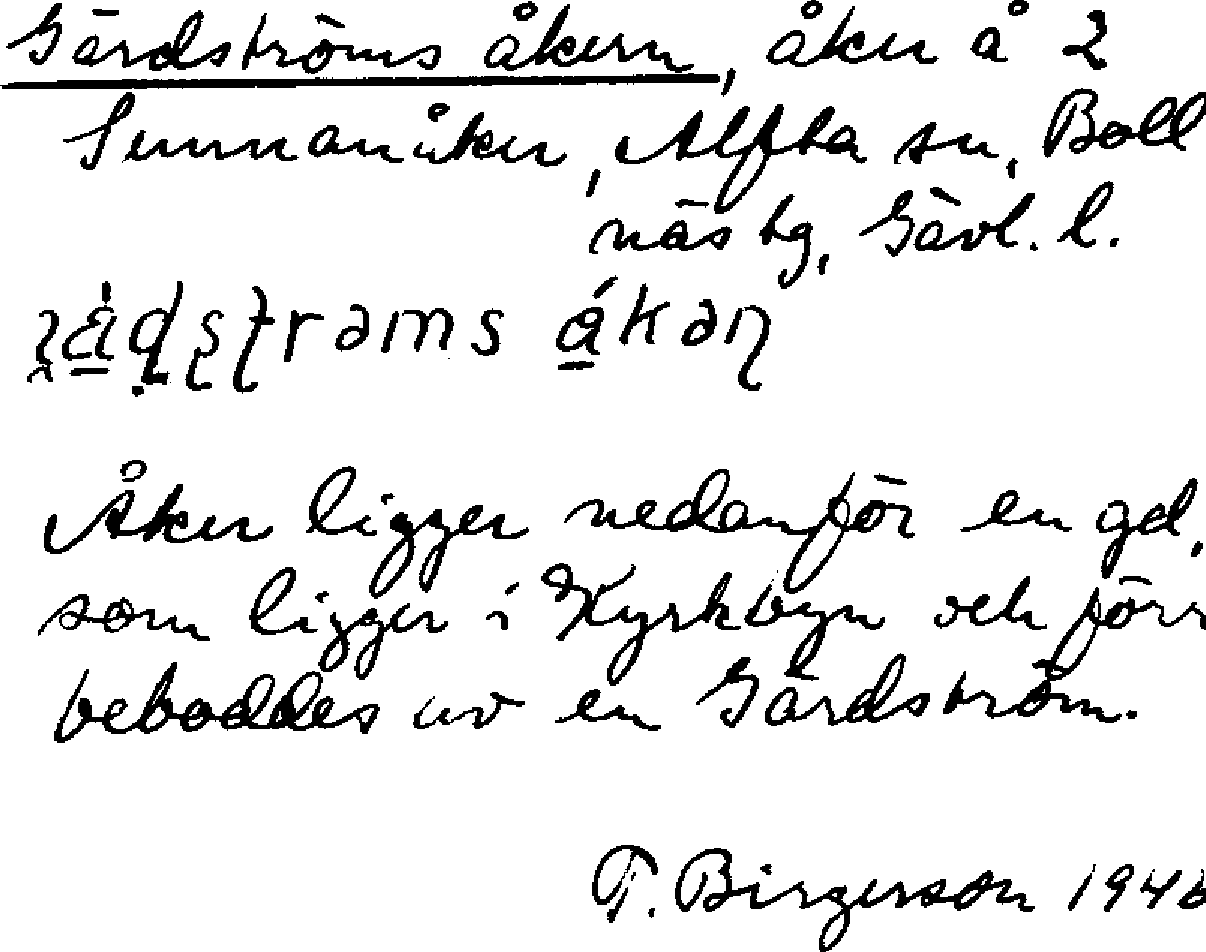 Gärdströms åkern, åker å 2
Sunnanåker, Alfta sn, Boll
näs tg, Gävl. l.
Åker ligger nedanför en gd,
som ligger i Kyrkbyn och förr
beboddes av en Gärdström.
F. Birgerson 1946